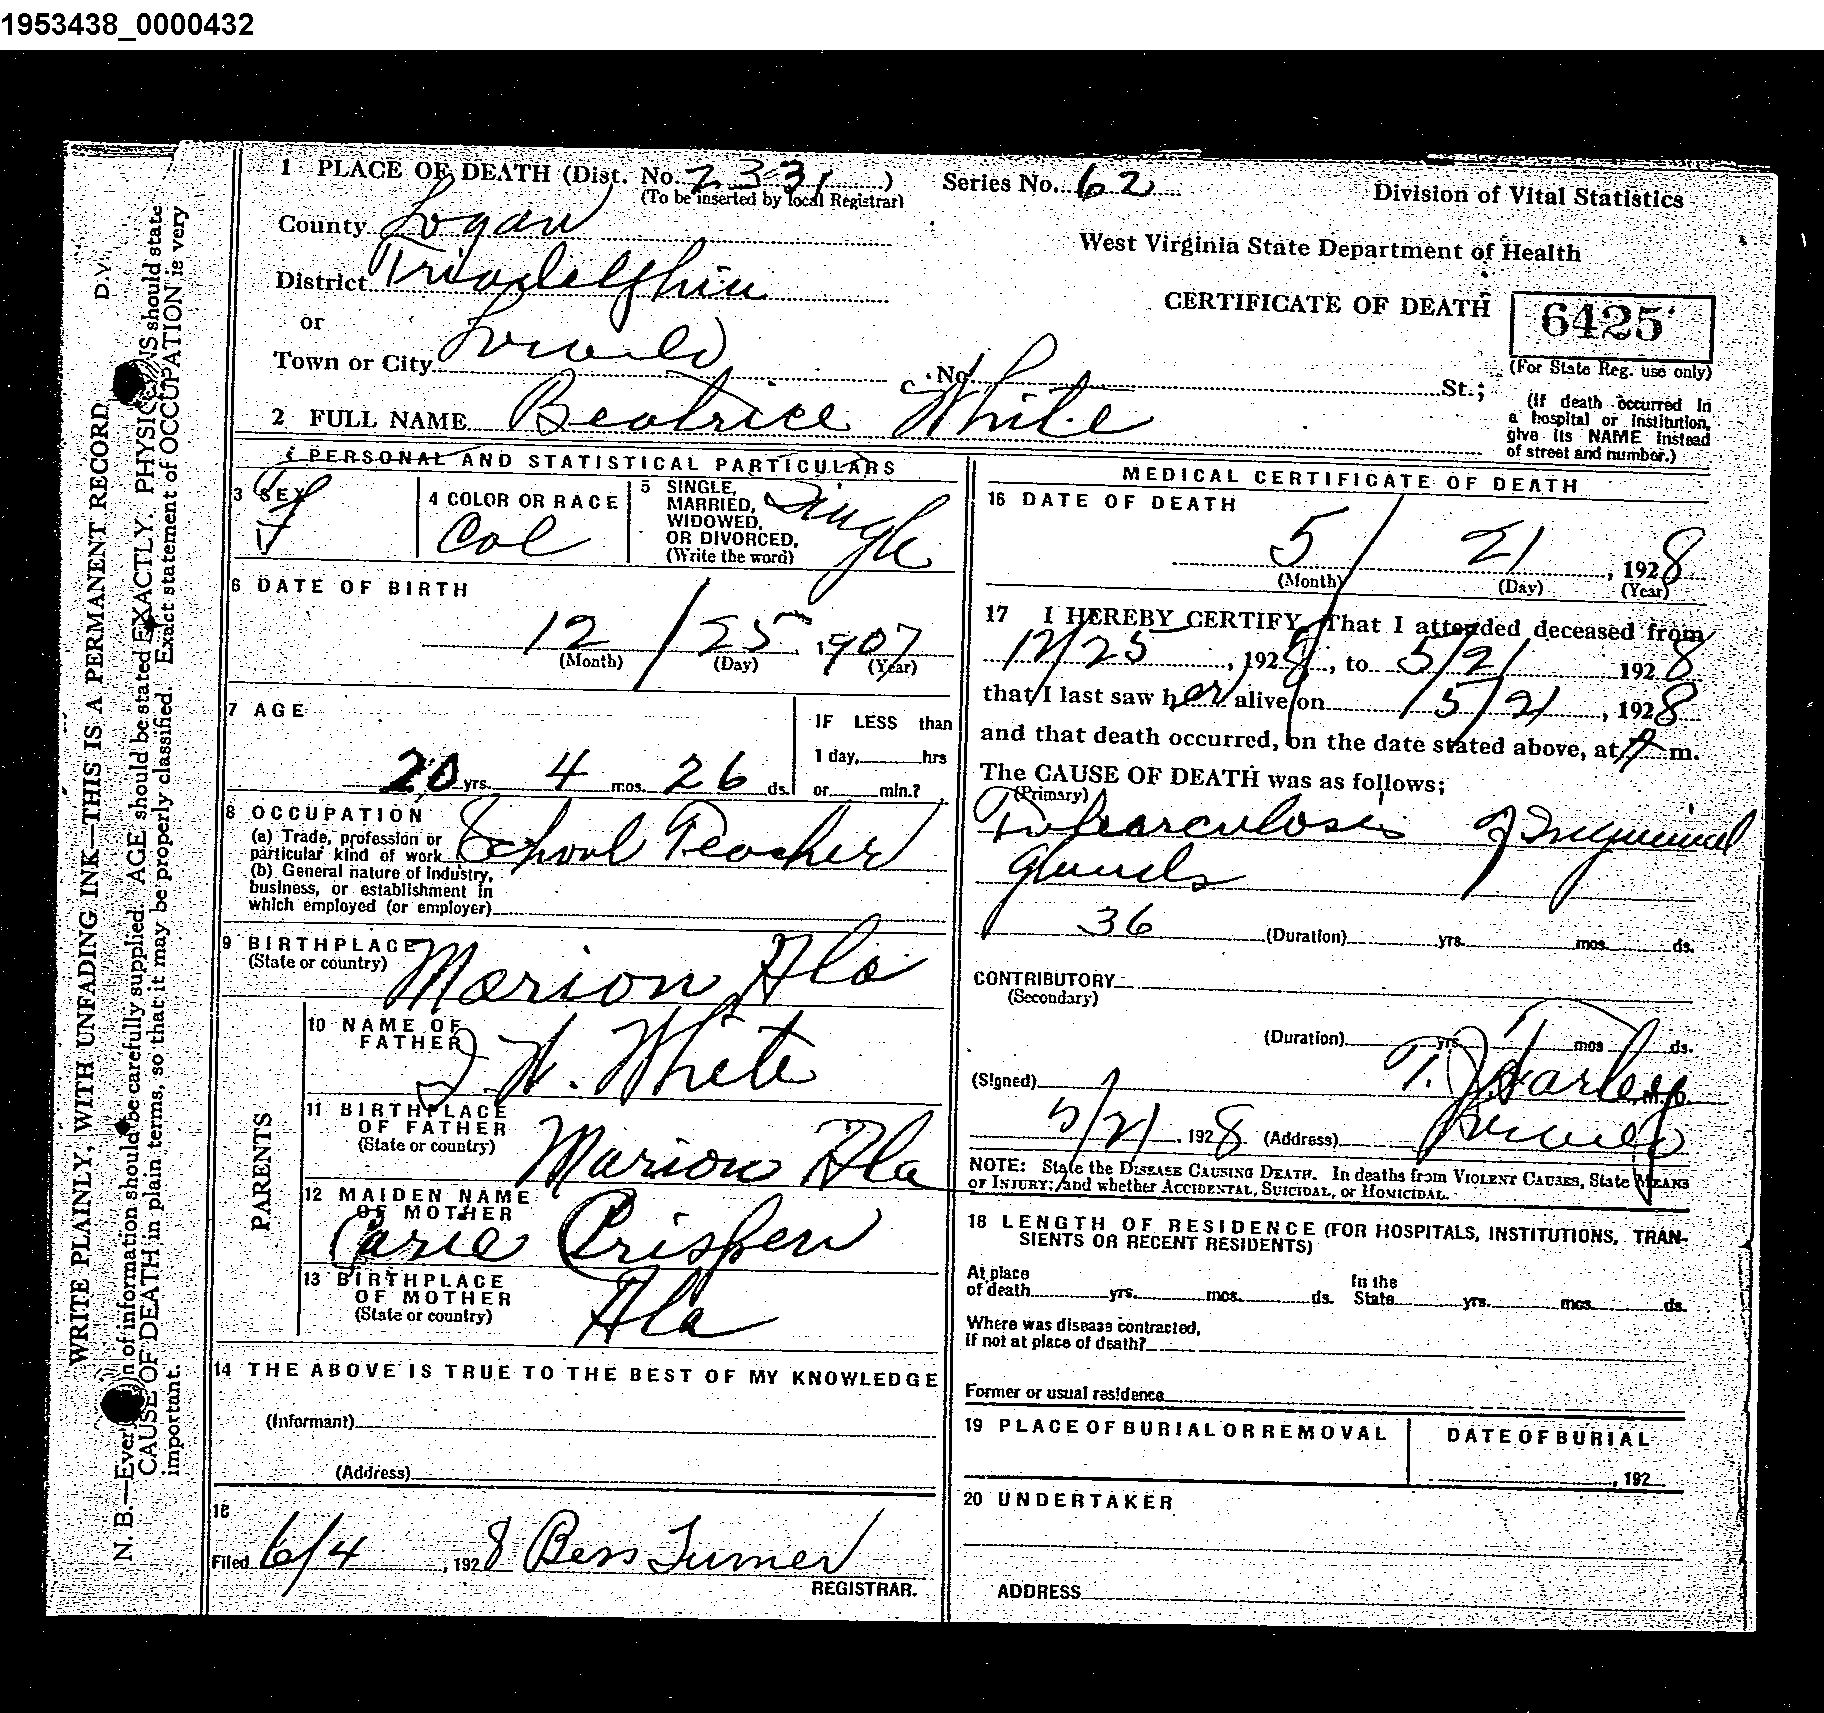 1953438_0000432
1 PLACE OF DEATH (Dist. No. 2331) Series No. 62 Division of Vital Statistics
(To be inserted by local Registrar)
County Logan
West Virginia State Department of Health
District Triadelphia
CERTIFICATE OF DEATH 6425
or
(For State Reg. use only)
Town or City No. St.;
(If death occurred in
a hospital or institution,
give its NAME instead
of street and number.)
2 FULL NAME Beatrice White
PERSONAL AND STATISTICAL PARTICULARS
3 SEX F
4 COLOR OR RACE Col
5 SINGLE,
MARRIED,
WIDOWED,
OR DIVORCED,
(Write the word) Single
6 DATE OF BIRTH
12 / 25 1907
(Month) (Day) (Year)
7 AGE
20 yrs. 4 mos. 26 ds.
IF LESS than
1 day, hrs
or min.?
8 OCCUPATION
(a) Trade, profession or
particular kind of work School Teacher
(b) General nature of Industry,
business, or establishment in
which employed (or employer)
9 BIRTHPLACE
(State or country) Marion Ala
PARENTS
10 NAME OF
FATHER J. W. White
11 BIRTHPLACE
OF FATHER
(State or country) Marion Ala
12 MAIDEN NAME
OF MOTHER
Carie Crispen
13 BIRTHPLACE
OF MOTHER
(State or country) Ala
14 THE ABOVE IS TRUE TO THE BEST OF MY KNOWLEDGE
(Informant)
(Address)
15
Filed 6/4, 1928 Bess Turner
REGISTRAR.
MEDICAL CERTIFICATE OF DEATH
16 DATE OF DEATH
5 / 21, 1928
(Month) (Day) (Year)
17 I HEREBY CERTIFY, That I attended deceased from
12/25, 192, to 5/21 1928
that I last saw her alive on 5/21, 1928
and that death occurred, on the date stated above, at m.
The CAUSE OF DEATH was as follows;
(Primary)
Tuberculosis of Inguinal
glands
36 (Duration) yrs. mos. ds.
CONTRIBUTORY
(Secondary)
(Duration) yrs. mos. ds.
(Signed) T. Farley, M. D.
5/21, 1928 (Address)
NOTE: State the DISEASE CAUSING DEATH. In deaths from VIOLENT CAUSES, State MEANS
OF INJURY; and whether ACCIDENTAL, SUICIDAL, or HOMICIDAL.
18 LENGTH OF RESIDENCE (FOR HOSPITALS, INSTITUTIONS, TRAN-
SIENTS OR RECENT RESIDENTS)
At place
of death yrs. mos. ds.
In the
State yrs. mos. ds.
Where was disease contracted,
If not at place of death?
Former or usual residence
19 PLACE OF BURIAL OR REMOVAL
DATE OF BURIAL
, 192
20 UNDERTAKER
ADDRESS
D.V.
WRITE PLAINLY, WITH UNFADING INK—THIS IS A PERMANENT RECORD
N. B.—Every of information should be carefully supplied. AGE should be stated EXACTLY. PHYSICIANS should state
CAUSE OF DEATH in plain terms, so that it may be properly classified. Exact statement of OCCUPATION is very
important.